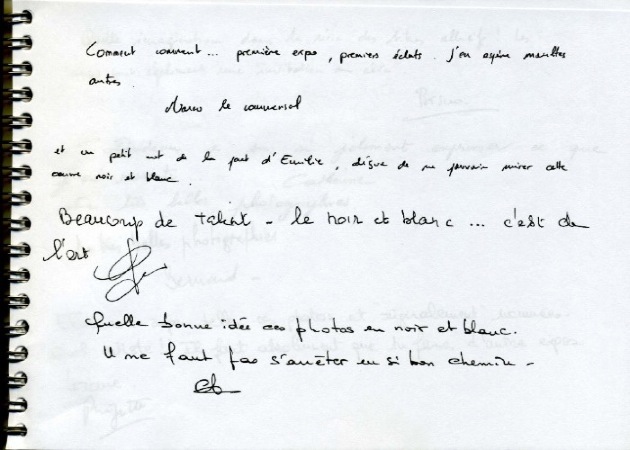 Comment comment... première expo, premiers éclats. J'en espère maultes
autres.
Marco le
et un petit mot de la part d'Emilie, déçue de ne pouvoir mirer cette
œuvre noir et blanc.
Beaucoup de talent - le noir et blanc ... c'est de
l'art
Quelle bonne idée ces photos en noir et blanc.
Il ne faut pas s'arrêter en si bon chemin -